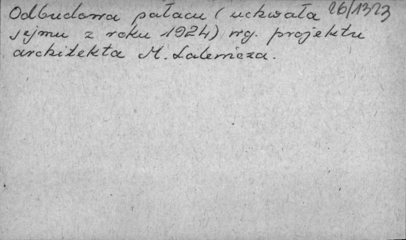 Odbudowa pałacu (uchwała 26/1323
sejmu z roku 1924) wg. projektu
architekta M. Lalewicza.